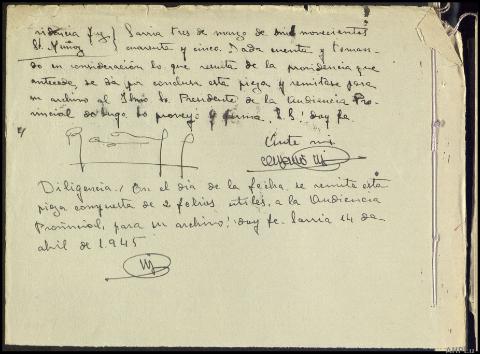 videncia Juez / Sarria tres de marzo de mil novecientos
Sr. Muñoz / cuarenta y cinco. Dada cuenta y toman-
do en consideración lo que resulta de la providencia que
antecede, se da por conclusa esta pieza y remitase para
su archivo al Iltmo Sr. Presidente de la Audiencia Pro-
vincial de Lugo lo proveyó y firma S.S.ª doy fe.
Ante mi
Diligencia / En el día de la fecha se remite esta
pieza compuesta de 2 folios útiles, a la Audiencia
Provincial, para su archivo; doy fe. Sarria 14 de
abril de 1.945